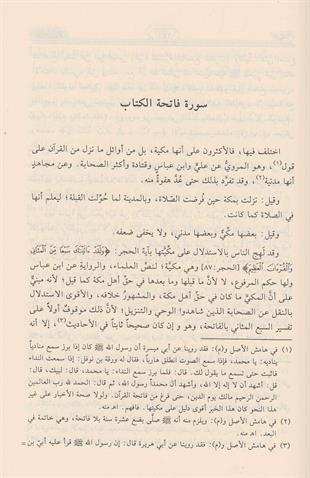 سورة فاتحة الكتاب
اختلف فيها، فالأكثرون على أنها مكية، بل من أوائل ما نزل من القرآن على
قول(١)، وهو المرويُّ عن عليٍّ وابن عباس وقتادة وأكثر الصحابة. وعن مجاهد
أنها مدنية(٢)، وقد تفرَّد بذلك حتى عُدَّ هفوةً منه.
وقيل: نزلت بمكة حين فُرضت الصَّلاة، وبالمدينة لما حُوِّلت القبلة؛ ليعلم أنها
في الصلاة كما كانت.
وقيل: بعضها مكيٌّ وبعضها مدني، ولا يخفى ضعفه.
وقد لهج الناس بالاستدلال على مكِّيَّتها بآية الحجر: ﴿وَلَقَدْ ءَاتَيْنَٰكَ سَبْعًا مِّنَ ٱلْمَثَانِى
وَٱلْقُرْءَانَ ٱلْعَظِيمَ﴾ [الحجر: ٨٧] وهي مكية؛ لنصِّ العلماء، والرواية عن ابن عباس
ولها حكم المرفوع، لا لأنَّ ما قبلها وما بعدها في حق أهل مكة كما قيل؛ لأنه مبنيٌّ
على أنَّ المكيَّ ما كان في حقِّ أهل مكة، والمشهورُ خلافه، والأقوى الاستدلال
بالنقل عن الصحابة الذين شاهدوا الوحي والتنزيل؛ لأنَّ ذلك موقوفٌ أولاً على
تفسير السبع المثاني بالفاتحة، وهو وإن كان صحيحاً ثابتاً في الأحاديث(٣)، إلا أنه
(١) في هامش الأصل و(م): فقد روينا عن أبي ميسرة أن رسول الله ﷺ كان إذا برز سمع منادياً
يناديه: يا محمد، فإذا سمع الصوت انطلق هارباً، فقال له ورقة بن نوفل: إذا سمعت النداء
فاثبت حتى تسمع ما يقول لك. قال: فلما برز سمع النداء: يا محمد، قال: لبيك، قال:
قل: أشهد أن لا إله إلا الله، وأشهد أنَّ محمداً رسول الله، ثم قال: الحمد لله رب العالمين
الرحمن الرحيم مالك يوم الدين، حتى فرغ من فاتحة القرآن. ولولا صحة الأخبار على غير
هذا النحو كان هذا الخبر أقوى دليل على مكيتها. فافهم. اهـ منه.
(٢) في هامش الأصل و(م): ويلزم منه أنه ﷺ صلَّى بضع عشرة سنة بلا فاتحة، وهي خاتمة في
البعد. اهـ منه.
(٣) في هامش الأصل و(م): فقد روينا عن أبي هريرة قال: إن رسول الله ﷺ قرأ عليه أبي بن =